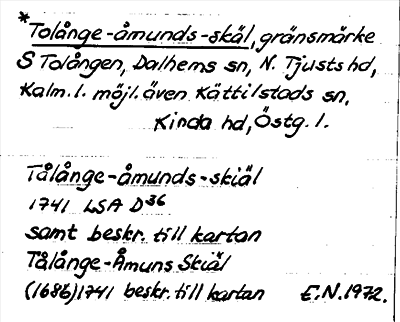 *Tolånge-åmunds-skäl, gränsmärke
S Tolången, Dalhems sn, N. Tjusts hd,
Kalm. l. möjl. även Kättilstads sn,
Kinda hd, Östg. l.
Tålånge-åmunds-skiäl
1741 LSA D36
samt beskr. till kartan
Tålånge-Åmuns Skiäl
(1686) 1741 beskr. till kartan E.N. 1972.